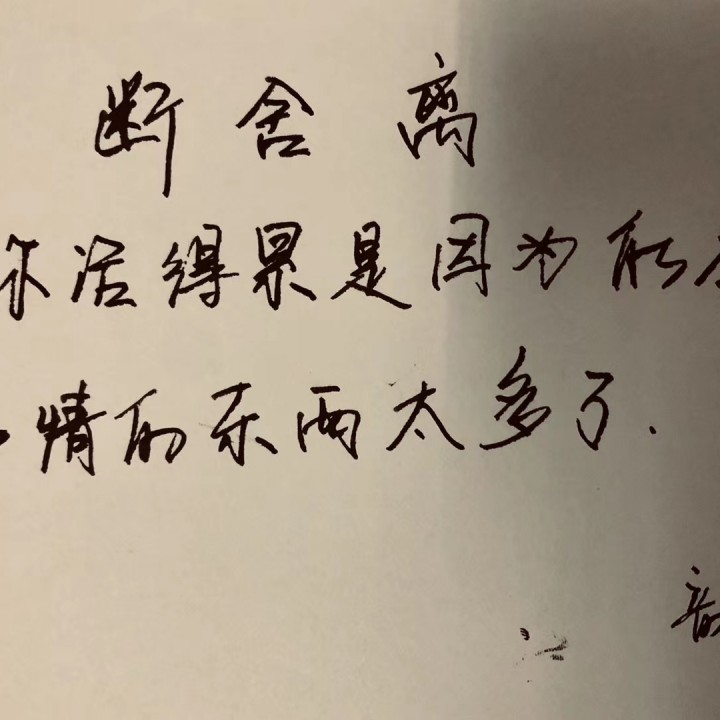 断舍离
你活得累是因为能左
心情的东西太多了.